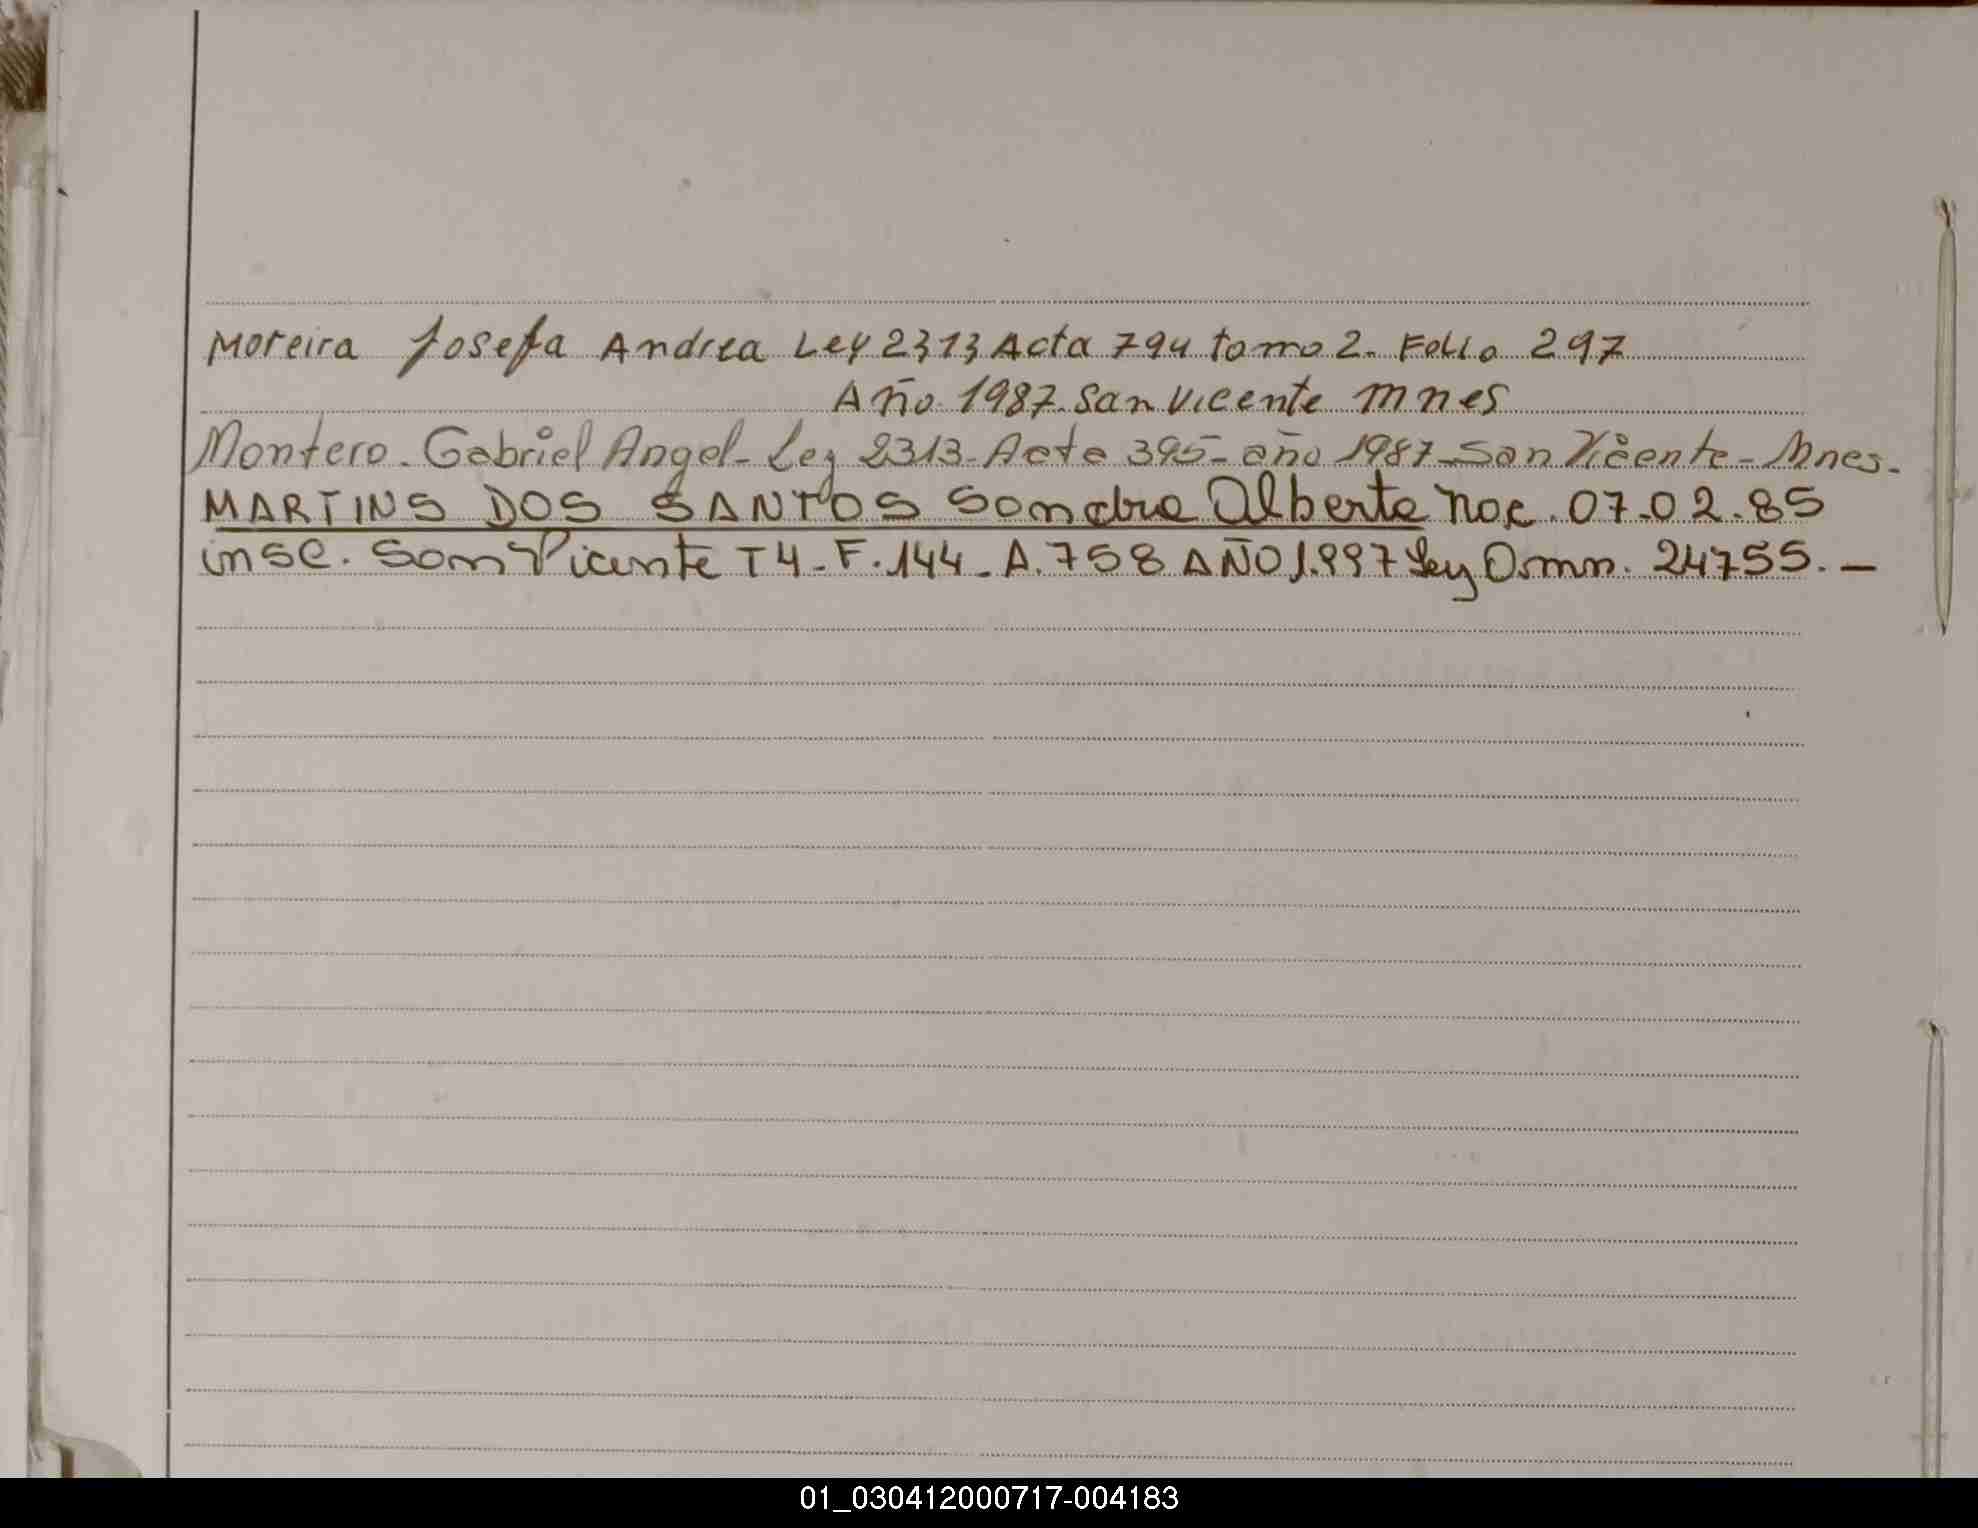 Moreira Josefa Andrea Ley 2313 Acta 794 tomo 2. Folio 297
Año 1987. San Vicente mnes
Montero. Gabriel Angel - Ley 2313 - Acta 395 - año 1987 - San Vicente - Mnes.
MARTINS DOS SANTOS Sandra Alberta Nac. 07.02.85
insc. San Vicente T4-F.144-A.758 AÑO 1.997 Ley 24755.-
01_030412000717-004183